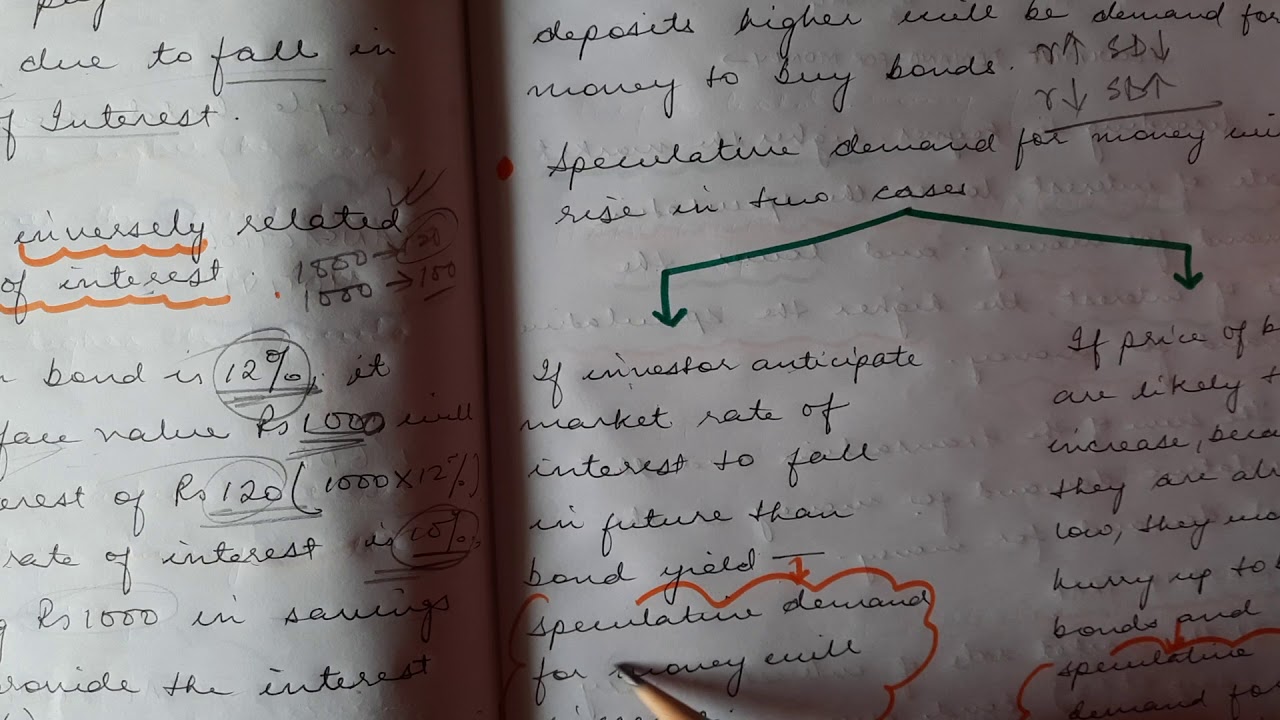 due to fall in
of Interest.
inversely related
of interest.
1000 → 120
1000 → 100
bond is 12%, it
face value Rs 1000 will
erest of Rs 120 (1000×12%)
rate of interest is 10%,
Rs 1000 in savings
rovide the interest
deposits higher will be demand for
money to buy bonds. r↑ SD↓
r↓ SD↑
Speculative demand for money wil
rise in two cases
If investor anticipate
market rate of
interest to fall
in future than
bond yield —
speculative demand
for money will
If price of b
are likely t
increase, beca
they are al
low, they wo
hurry up to b
bonds and
speculative
demand for